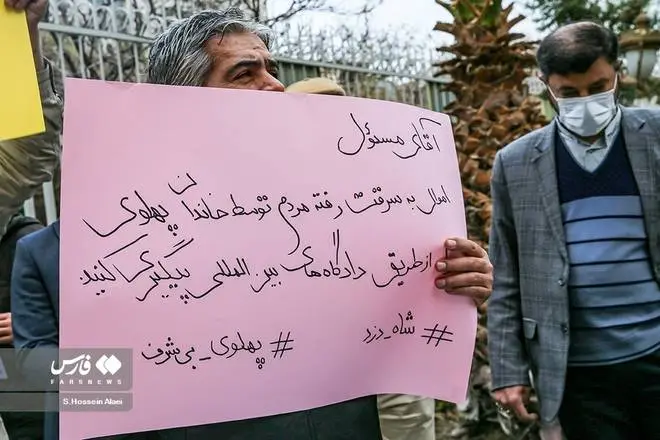 آقای مسئول
اموال به سرقت رفته مردم توسط خاندان پهلوی
از طریق دادگاه‌های بین المللی پیگیری کنید
#شاه_دزد
#پهلوی_بی‌شرف
فارس
FARSNEWS
S.Hossein Alani